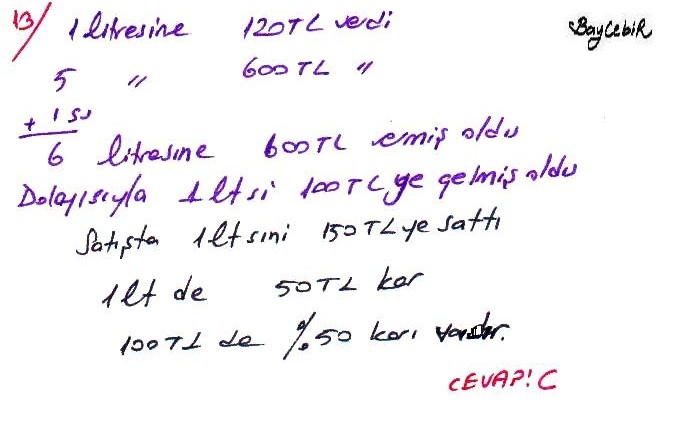 13/ 1 litresine 120TL verdi
BayCebiR
5 " 600 TL "
+ 1 su
6 litresine 600TL emiş oldu
Dolayısıyla 1 lt si 100TL ye gelmiş oldu
Satışta 1lt sini 150TL ye sattı
1lt de 50TL kar
100TL de %50 karı vardır.
CEVAP! C